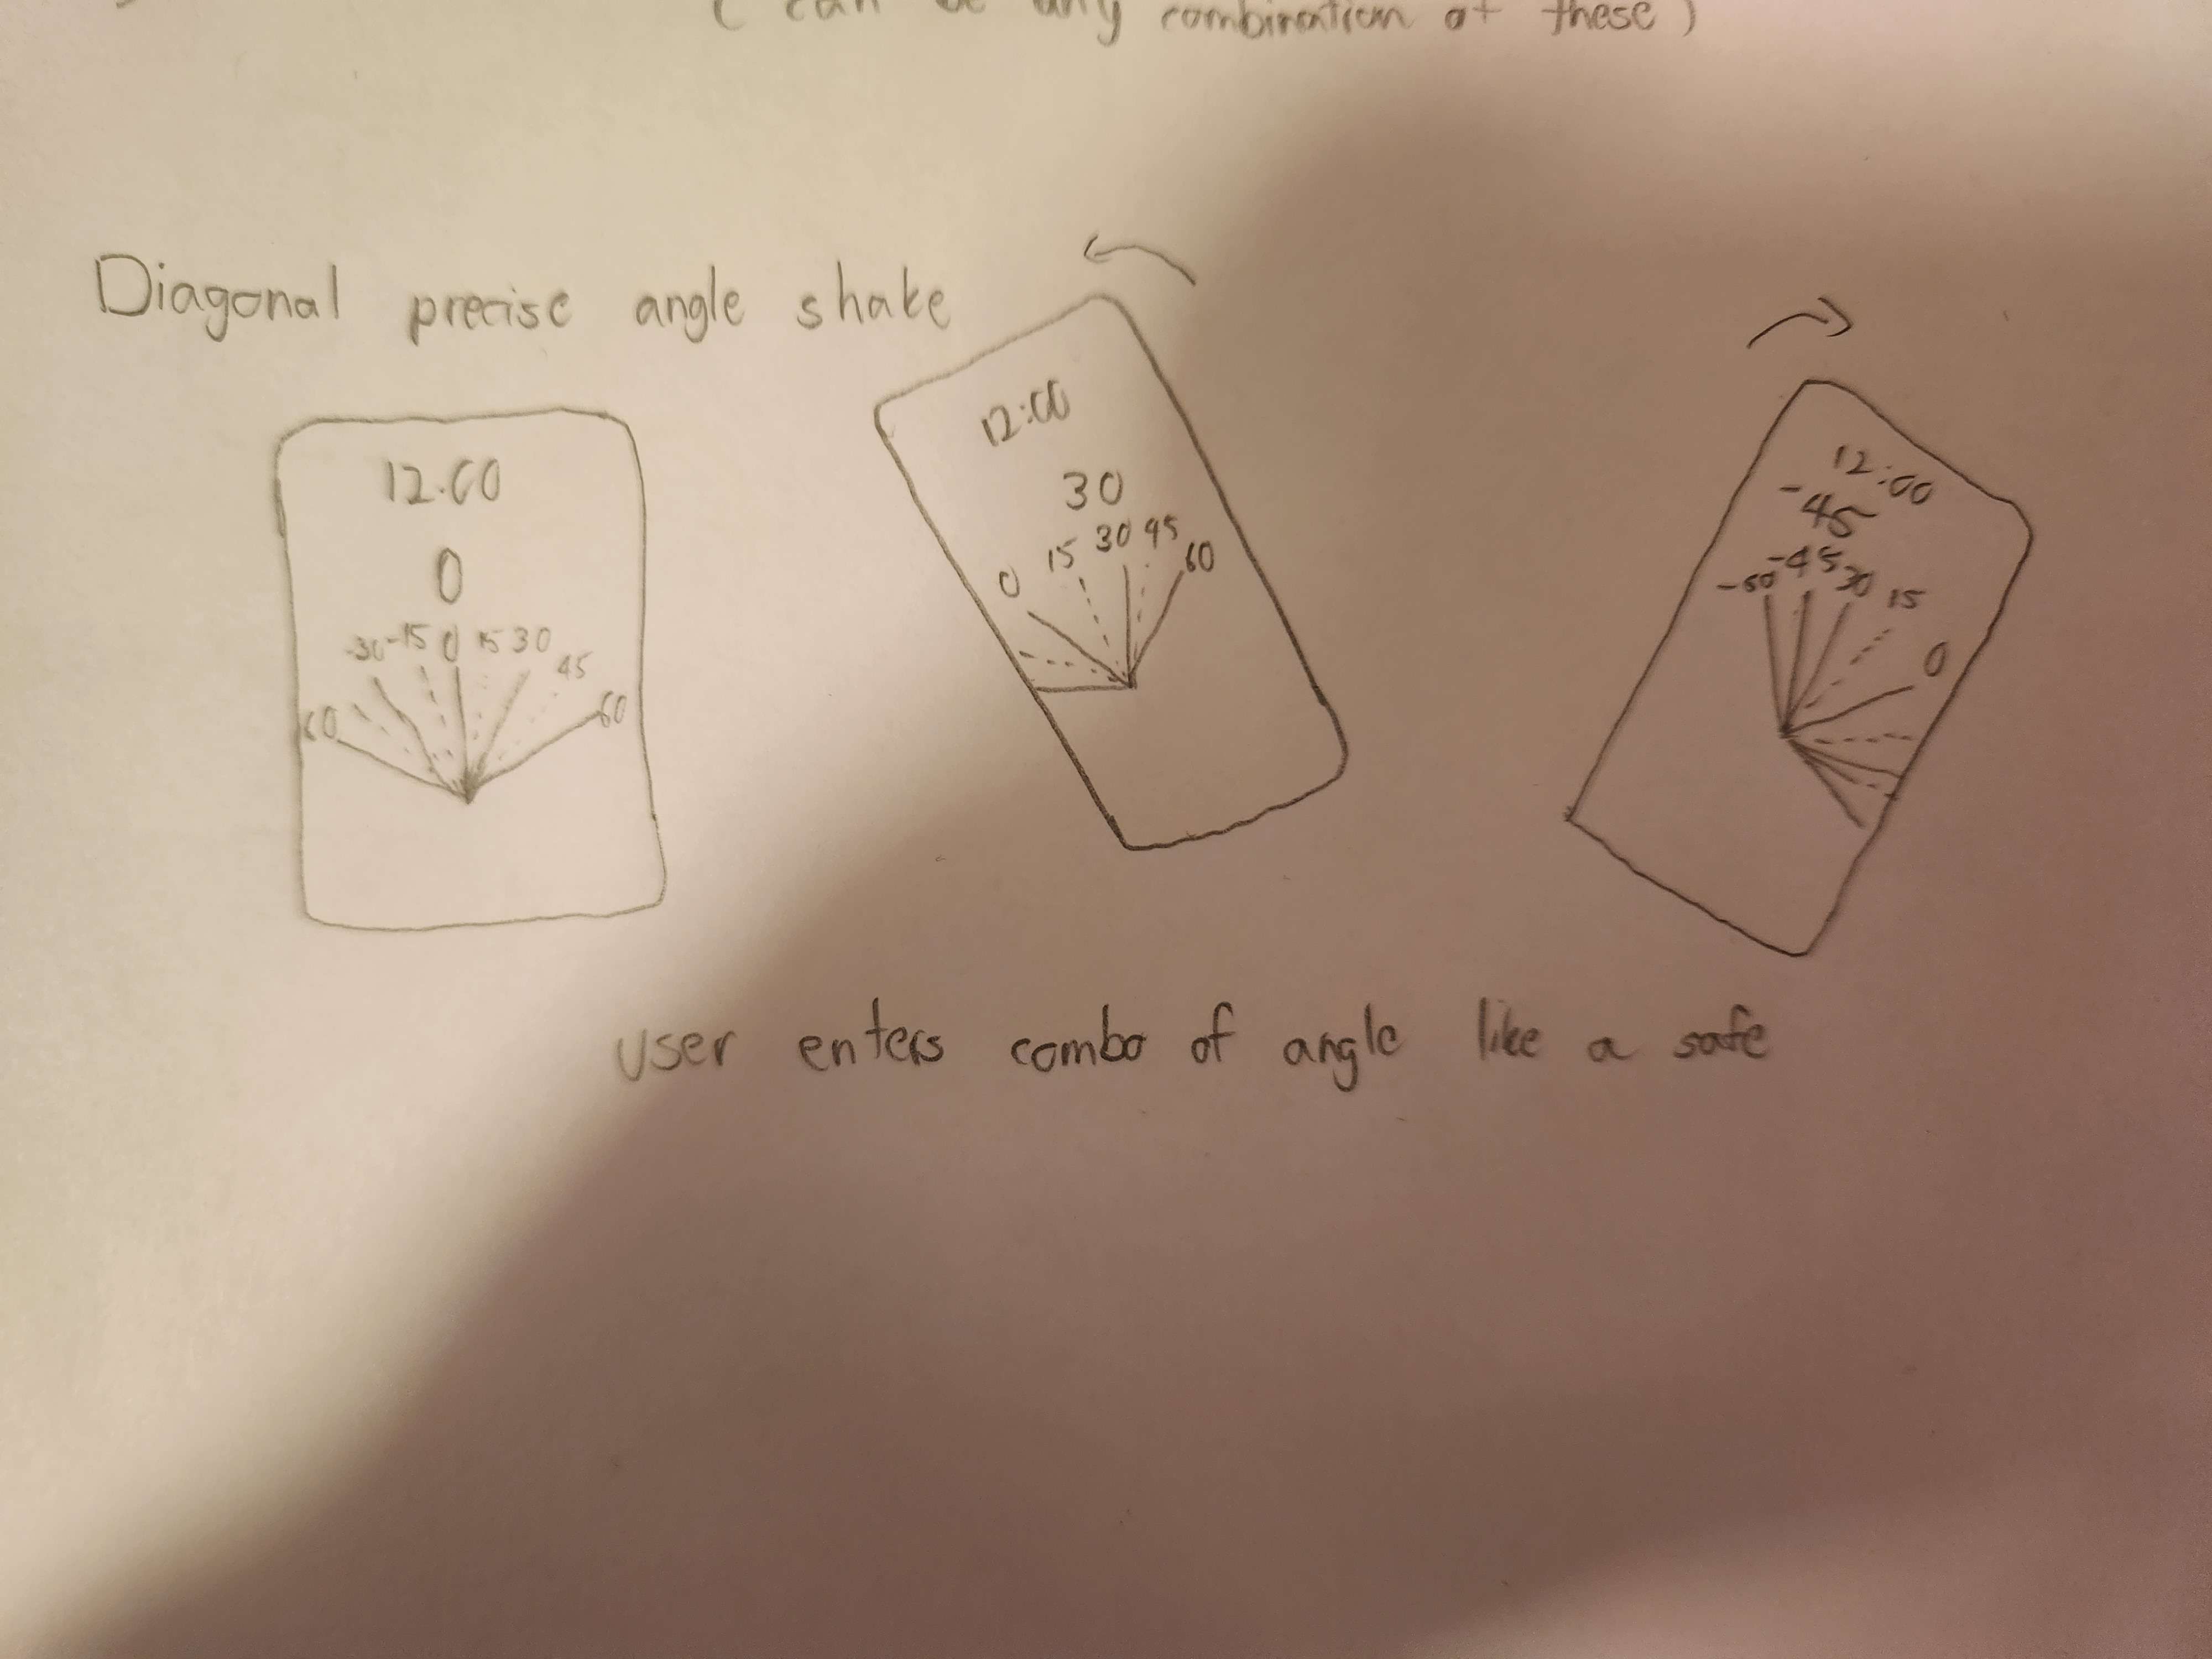 ( can be any combination of these )
Diagonal precise angle shake
12:00
0
-30 -15 0 15 30
45
60 60
12:00
30
0 15 30 45 60
12:00
-45
-60 -45 30 15
0
user enters combo of angle like a safe